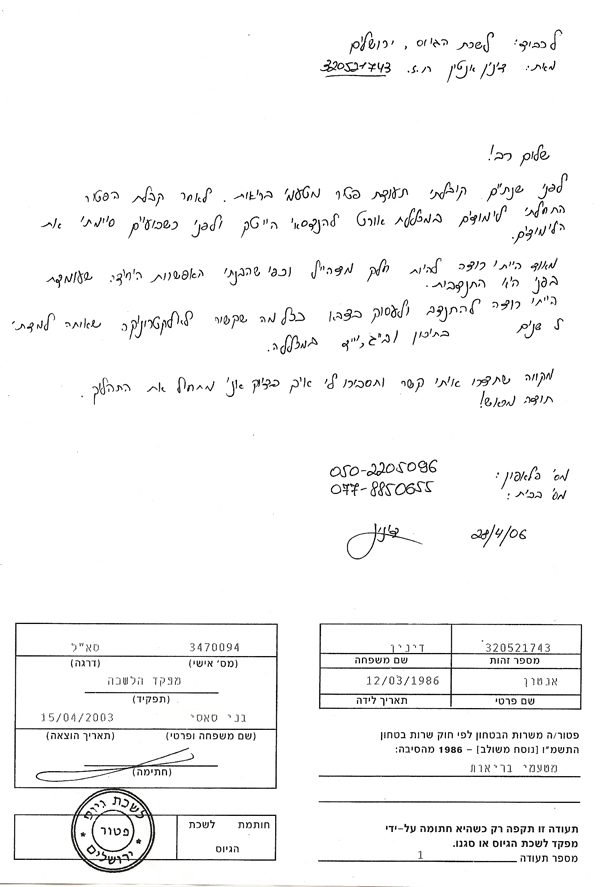 לכבוד: לשכת הגיוס, ירושלים
מאת: דינין אנטון ת.ז. 320521743
שלום רב!
לפני שנתיים קיבלתי תעודת פטור מטעמי בריאות. לאחר קבלת הפטור
התחלתי לימודים במכללת אורט להנדסאי הייטק ולפני כשבועיים סיימתי את
הלימודים.
מאוד הייתי רוצה להיות חלק מצה"ל וכפי שהבנתי האפשרות היחידה שעומדת
בפני היא התנדבות.
הייתי רוצה להתנדב ולעסוק בצבא בכל מה שקשור לאלקטרוניקה שאותה למדתי
שנים בתיכון במכללה.
מקווה שתצרו איתי קשר ותסבירו לי איך בדיוק אני מתחיל את התהליך.
תודה מראש!
מס' פלאפון: 050-2205096
מס' בבית: 077-8850655
28/4/06
320521743 דינין
מספר זהות שם משפחה
אנטון 12/03/1986
שם פרטי תאריך לידה
פטור/ה משרות הבטחון לפי חוק שרות בטחון
התשמ"ו [נוסח משולב] – 1986 מהסיבה:
מטעמי בריאות
תעודה זו תקפה רק כשהיא חתומה על-ידי
מפקד לשכת הגיוס או סגנו.
מספר תעודה 1
3470094 סא"ל
(מס' אישי) (דרגה)
מפקד הלשכה
(תפקיד)
בני סאסי 15/04/2003
(שם משפחה ופרטי) (תאריך הוצאה)
(חתימה)
חותמת לשכת
הגיוס
לשכת גיוס
פטור
ירושלים